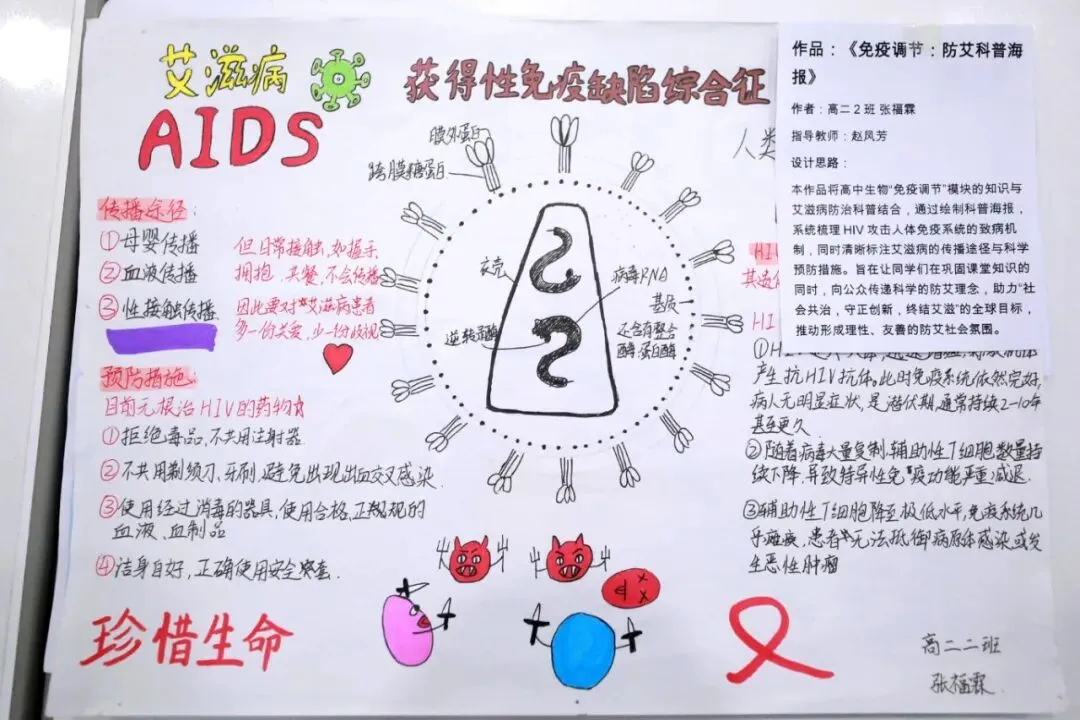 艾滋病
AIDS
获得性免疫缺陷综合征
人类
传播途径:
①母婴传播
②血液传播
③性接触传播
但日常接触,如握手
拥抱、共餐,不会传播
因此要对艾滋病患者
多一份关爱,少一份歧视
预防措施:
目前无根治HIV的药物☆
①拒绝毒品,不共用注射器
②不共用剃须刀、牙刷,避免出现出血交叉感染.
③使用经过消毒的器具,使用合格,正规的
血液、血制品
④洁身自好,正确使用安全套.
珍惜生命
膜外蛋白
跨膜糖蛋白
衣壳
病毒RNA
基质
逆转录酶
还含有整合
酶、蛋白酶
作品:《免疫调节:防艾科普海
报》
作者:高二2班 张福霖
指导教师:赵凤芳
设计思路:
本作品将高中生物“免疫调节”模块的知识与
艾滋病防治科普结合,通过绘制科普海报,
系统梳理HIV攻击人体免疫系统的致病机
制,同时清晰标注艾滋病的传播途径与科学
预防措施。旨在让同学们在巩固课堂知识的
同时,向公众传递科学的防艾理念,助力“社
会共治,守正创新,终结艾滋”的全球目标,
推动形成理性、友善的防艾社会氛围。
HI
HI
产生抗HIV抗体。此时免疫系统依然完好,
病人无明显症状,是潜伏期,通常持续2-10年
甚至更久
②随着病毒大量复制,辅助性T细胞数量持
续下降,导致特异性免疫功能严重减退.
③辅助性T细胞降至极低水平,免疫系统几
乎瘫痪,患者无法抵御病原体感染或发
生恶性肿瘤
高二二班
张福霖